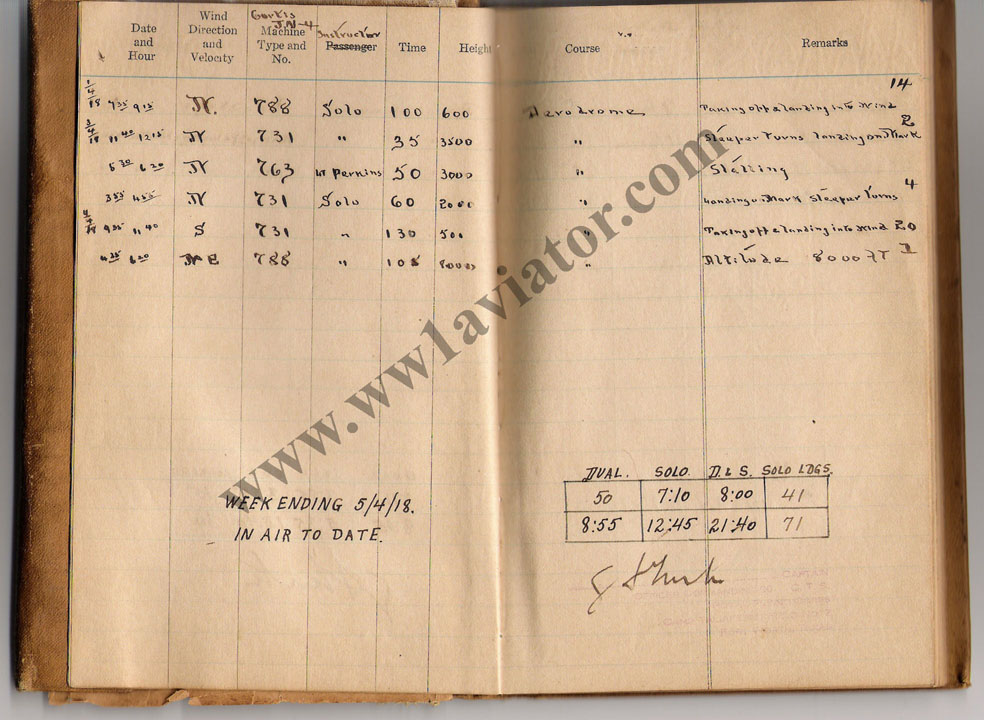 Curtis
J.N-4
Date and Hour Wind Direction and Velocity Machine Type and No. Instructor Passenger Time Height Course Remarks
14
1/4/18 7 35 9 15 N. 788 Solo 100 600 Aerodrome Taking off & landing into Wind
2
3/4/18 11 40 12 15 N 731 " 35 3500 " Steeper turns landing on Mark
5 30 6 20 N 763 Lt Perkins 50 3000 " Stalling
4
3 55 4 55 N 731 Solo 60 2000 " Landing on Mark Steeper Turns
9 11 40 S 731 " 130 500 " Taking off & landing into Wind 20
N E 788 " 8000 " Altitude 8000 FT 1
www.1aviator.com
DUAL. SOLO. D. & S. SOLO LDGS.
WEEK ENDING 5/4/18. 50 7:10 8:00 41
IN AIR TO DATE. 8:55 12:45 21:40 71